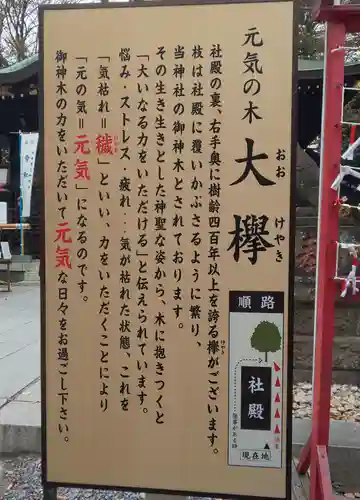 元気の木
大欅
おお
けやき
社殿の裏、右手奥に樹齢四百年以上を誇る欅がございます。
けやき
枝は社殿に覆いかぶさるように繁り、
当神社の御神木とされております。
その生き生きとした神聖な姿から、木に抱きつくと
「大いなる力をいただける」と伝えられています。
悩み・ストレス・疲れ…気が枯れた状態、これを
「気枯れ＝穢」といい、力をいただくことにより
けがれ
「元の気＝元気」になるのです。
御神木の力をいただいて元気な日々をお過ごし下さい。
順路
社殿
現在地